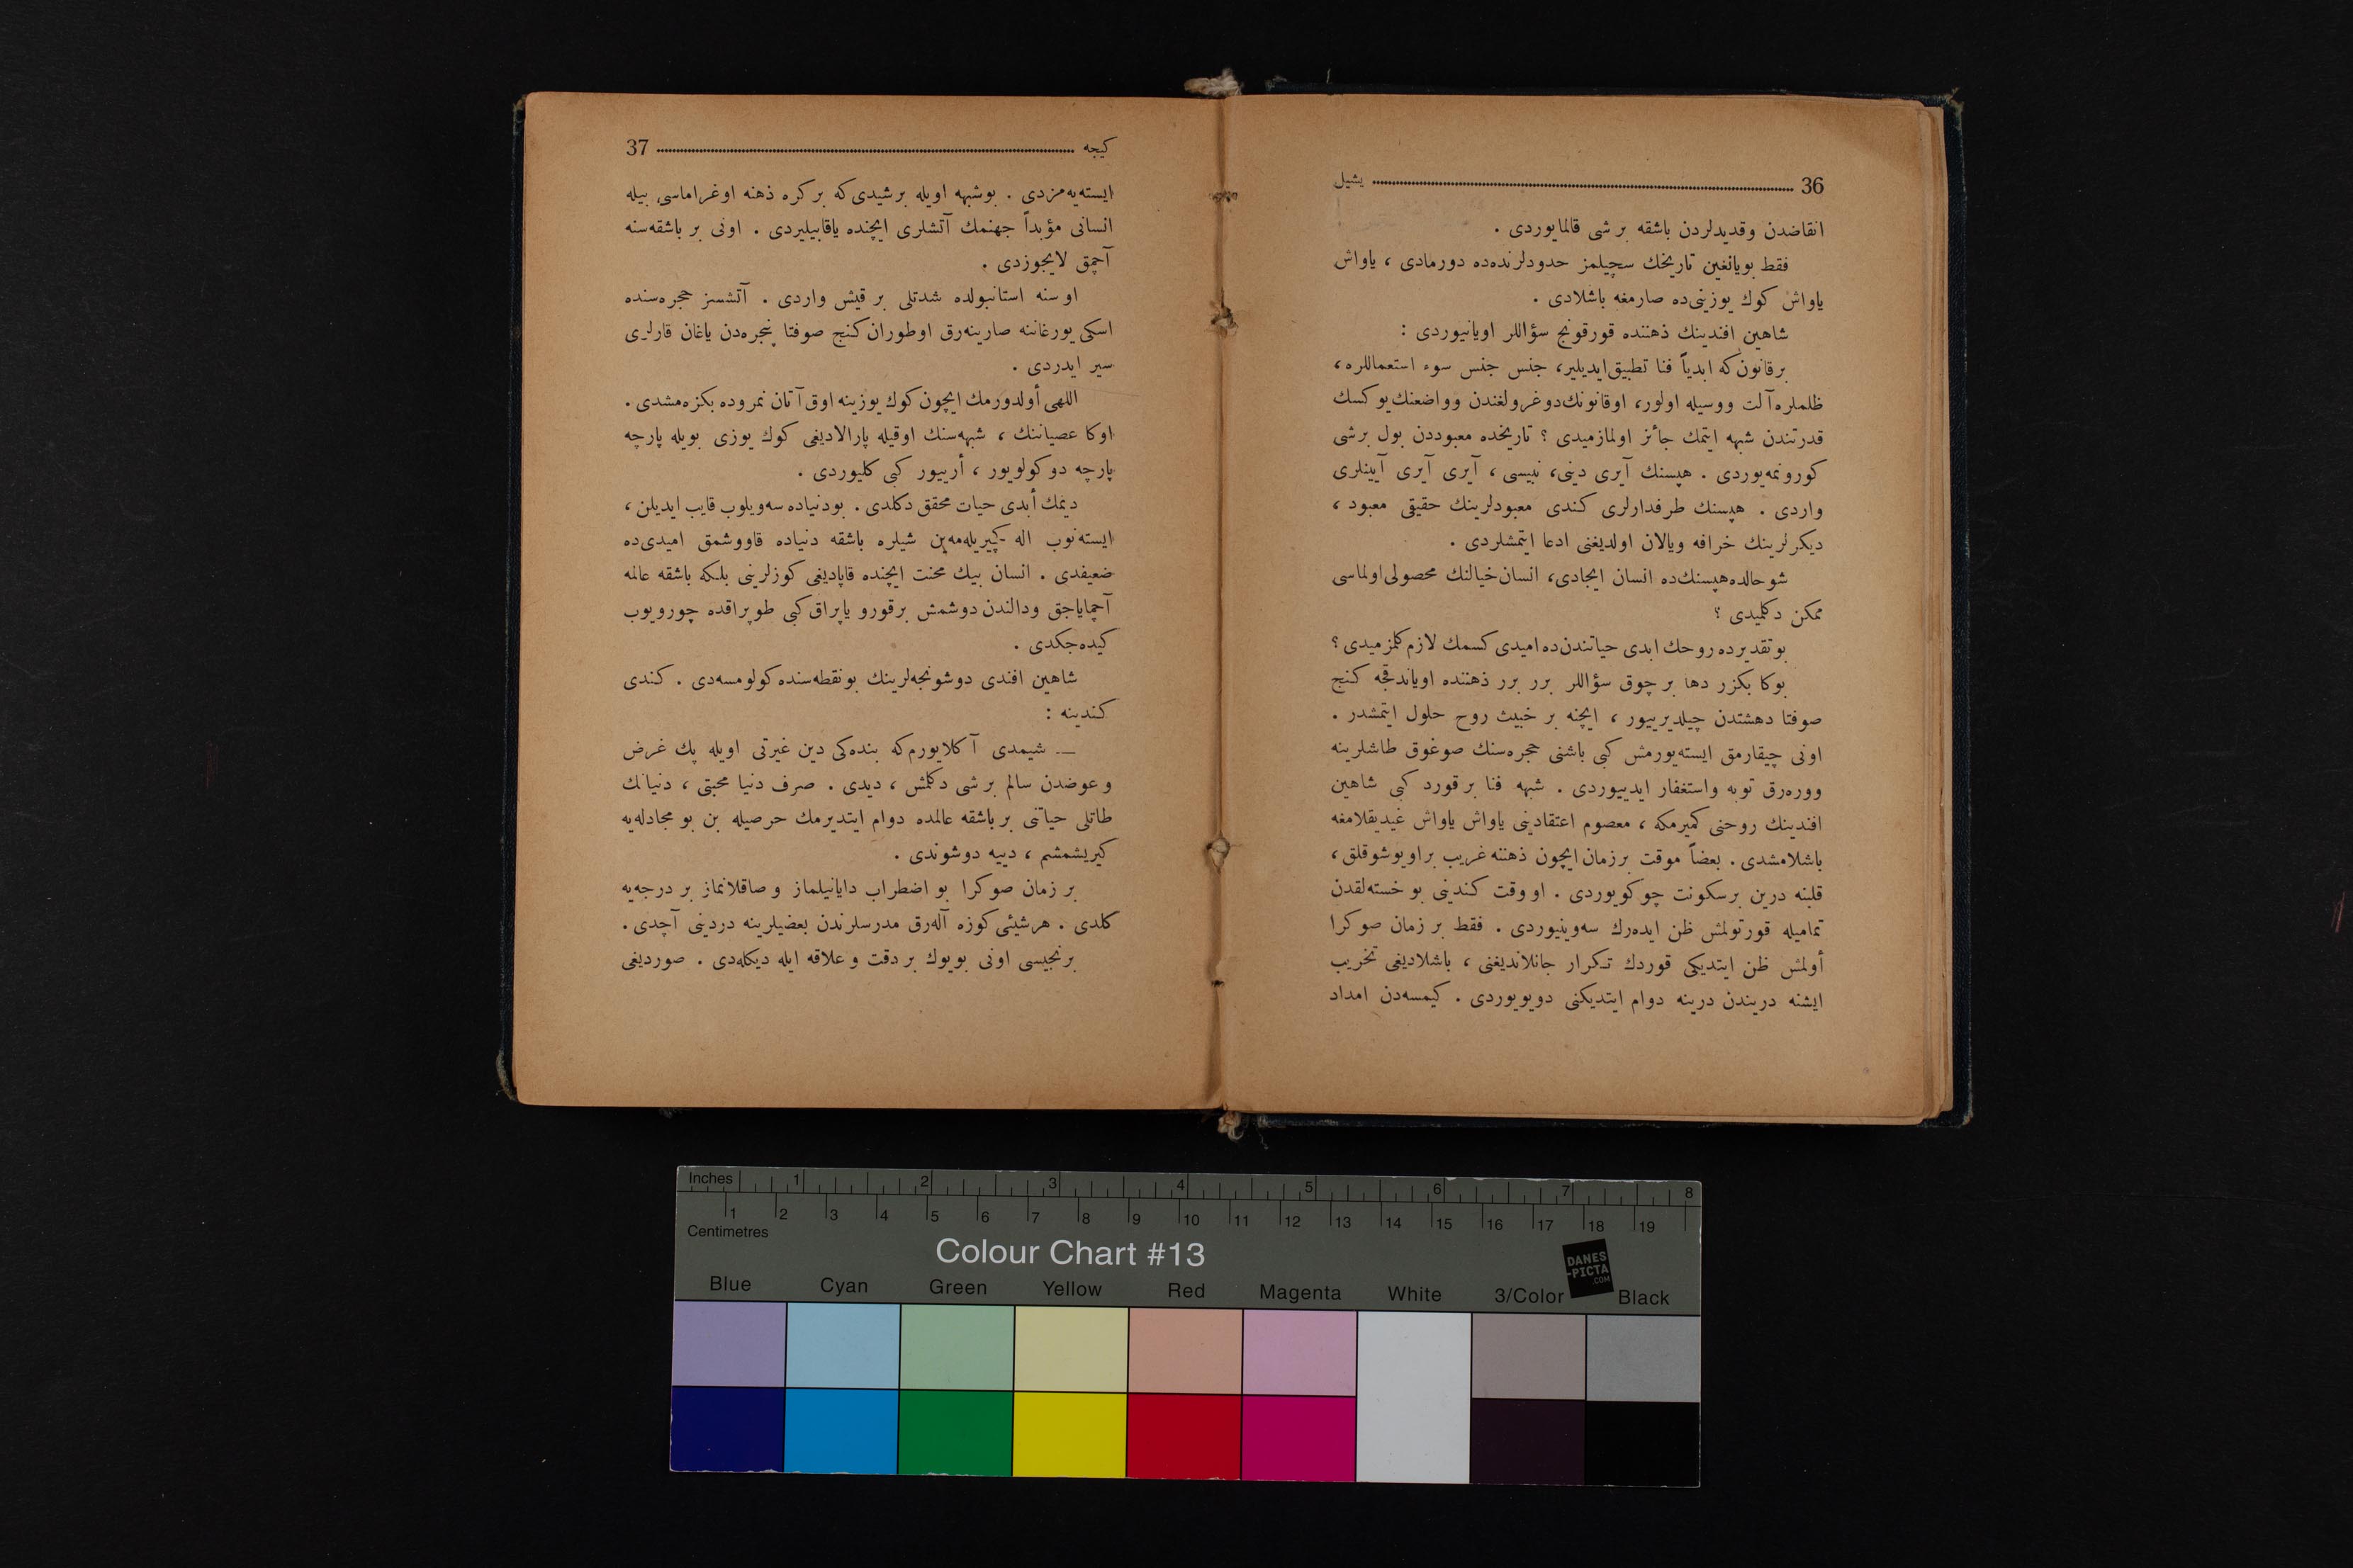 36 یشیل
انقاضدن وقدیدلردن باشقه بر شی قالمایوردی .
فقط بویانغین تاریخك سچیلمز حدودلرنده‌ده دورمادی ، یاواش
یاواش كوك یوزینی‌ده صارمغه باشلادی .
شاهین افندینك ذهننده قورقونج سؤاللر اویانیوردی :
برقانون‌كه ابدیاً فنا تطبیق‌ایدیلیر، جنس جنس سوء استعماللره،
ظلملره‌آلت ووسیله اولور، اوقانونك‌دوغرولغندن وواضعنك‌یوكسك
قدرتندن شبهه ایتمك جائز اولمازمیدی ؟ تاریخده معبوددن بول برشی
كورونمه‌یوردی . هپسنك آیری دینی، نبیسی ، آیری آیری آیینلری
واردی . هپسنك طرفدارلری كندی معبودلرینك حقیقی معبود ،
دیكرلرینك خرافه ویالان اولدیغنی ادعا ایتمشلردی .
شوحالده‌هپسنك‌ده انسان ایجادی، انسان‌خیالنك محصولی‌اولماسی
ممكن دكلمیدی ؟
بوتقدیرده روحك ابدی حیاتندن‌ده‌امیدی كسمك لازم‌كلمزمیدی ؟
بوكا بكزر دها بر چوق سؤاللر برر برر ذهننده اویاندقجه كنج
صوفتا دهشتدن چیلدیرییور ، ایچنه بر خبیث روح حلول ایتمشدر .
اونی چیقارمق ایسته‌یورمش كبی باشنی حجره‌سنك صوغوق طاشلرینه
ووره‌رق توبه واستغفار ایدییوردی . شبهه فنا برقورد كبی شاهین
افندینك روحنی كمیرمكه ، معصوم اعتقادینی یاواش یاواش غیدیقلامغه
باشلامشدی . بعضاً موقت برزمان‌ایچون ذهننه غریب براویوشوقلق،
قلبنه درین برسكونت چوكویوردی . اووقت كندینی بو خسته‌لقدن
تمامیله قورتولمش ظن ایده‌رك سه‌وینیوردی . فقط بر زمان صوكرا
أولمش ظن ایتدیكی قوردك تكرار جانلاندیغنی ، باشلادیغی تخریب
ایشنه دریندن درینه دوام ایتدیكنی دویویوردی . كیمسه‌دن امداد
كیجه 37
ایسته‌یه‌مزدی . بوشبهه اویله برشیدی‌كه بركره ذهنه اوغراماسی بیله
انسانی مؤبداً جهنمك آتشلری ایچنده یاقابیلیردی . اونی بر باشقه‌سنه
آچمق لایجوزدی .
او سنه استانبولده شدتلی بر قیش واردی . آتشسز حجره‌سنده
اسكی‌یورغاننه صارینه‌رق اوطوران‌كنج صوفتا پنجره‌دن یاغان قارلری
سیر ایدردی .
اللهی أولدورمك‌ایچون‌كوك‌یوزینه اوق‌آتان نمروده بكزه‌مشدی .
اوكا عصیاننك ، شبهه‌سنك اوقیله پارالادیغی كوك یوزی بویله پارچه
پارچه دوكولویور ، أرییور كبی كلیوردی .
دیمك أبدی حیات محقق دكلدی . بودنیاده سه‌ویلوب قایب ایدیلن ،
ایسته‌نوب اله كچیریله‌مه‌ین شیلره باشقه دنیاده قاووشمق امیدی‌ده
ضعیفدی . انسان بیك محنت ایچنده قاپادیغی كوزلرینی بلكه باشقه عالمه
آچمایاجق ودالندن دوشمش برقورو یاپراق‌كبی طوپراقده چورویوب
كیده‌جكدی .
شاهین افندی دوشونجه‌لرینك بونقطه‌سنده كولومسه‌دی . كندی
كندینه :
— شیمدی آكلایورم‌كه بنده‌كی دین غیرتی اویله پك غرض
و عوضدن سالم برشی دكلمش ، دیدی . صرف دنیا محبتی ، دنیانك
طاتلی حیاتنی برباشقه عالمده دوام ایتدیرمك حرصیله بن بو مجادله‌یه
كیریشمشم ، دییه دوشوندی .
بر زمان صوكرا بو اضطراب دایانیلماز و صاقلانماز بر درجه‌یه
كلدی . هرشیئی‌كوزه آله‌رق مدرسلرندن بعضیلرینه دردینی آچدی .
برنجیسی اونی بویوك بردقت وعلاقه ایله دیكله‌دی . صوردیغی
Inches 1 2 3 4 5 6 7 8
1 2 3 4 5 6 7 8 9 10 11 12 13 14 15 16 17 18 19
Centimetres
Colour Chart #13
DANES
-PICTA
.COM
Blue Cyan Green Yellow Red Magenta White 3/Color Black